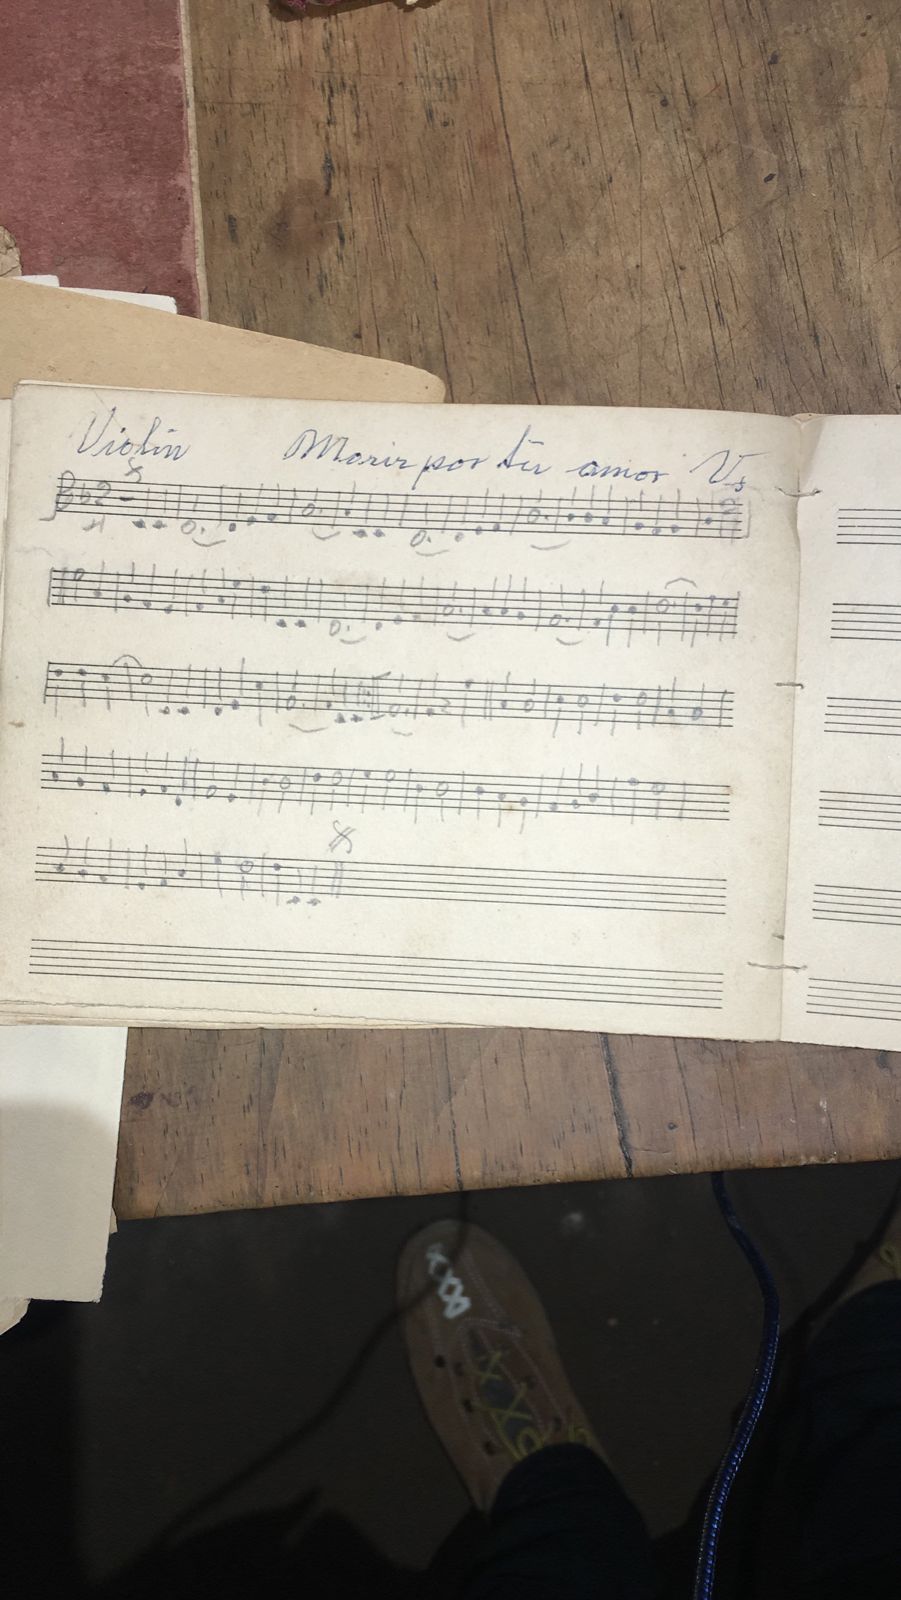 Violin Morir por tu amor Vs